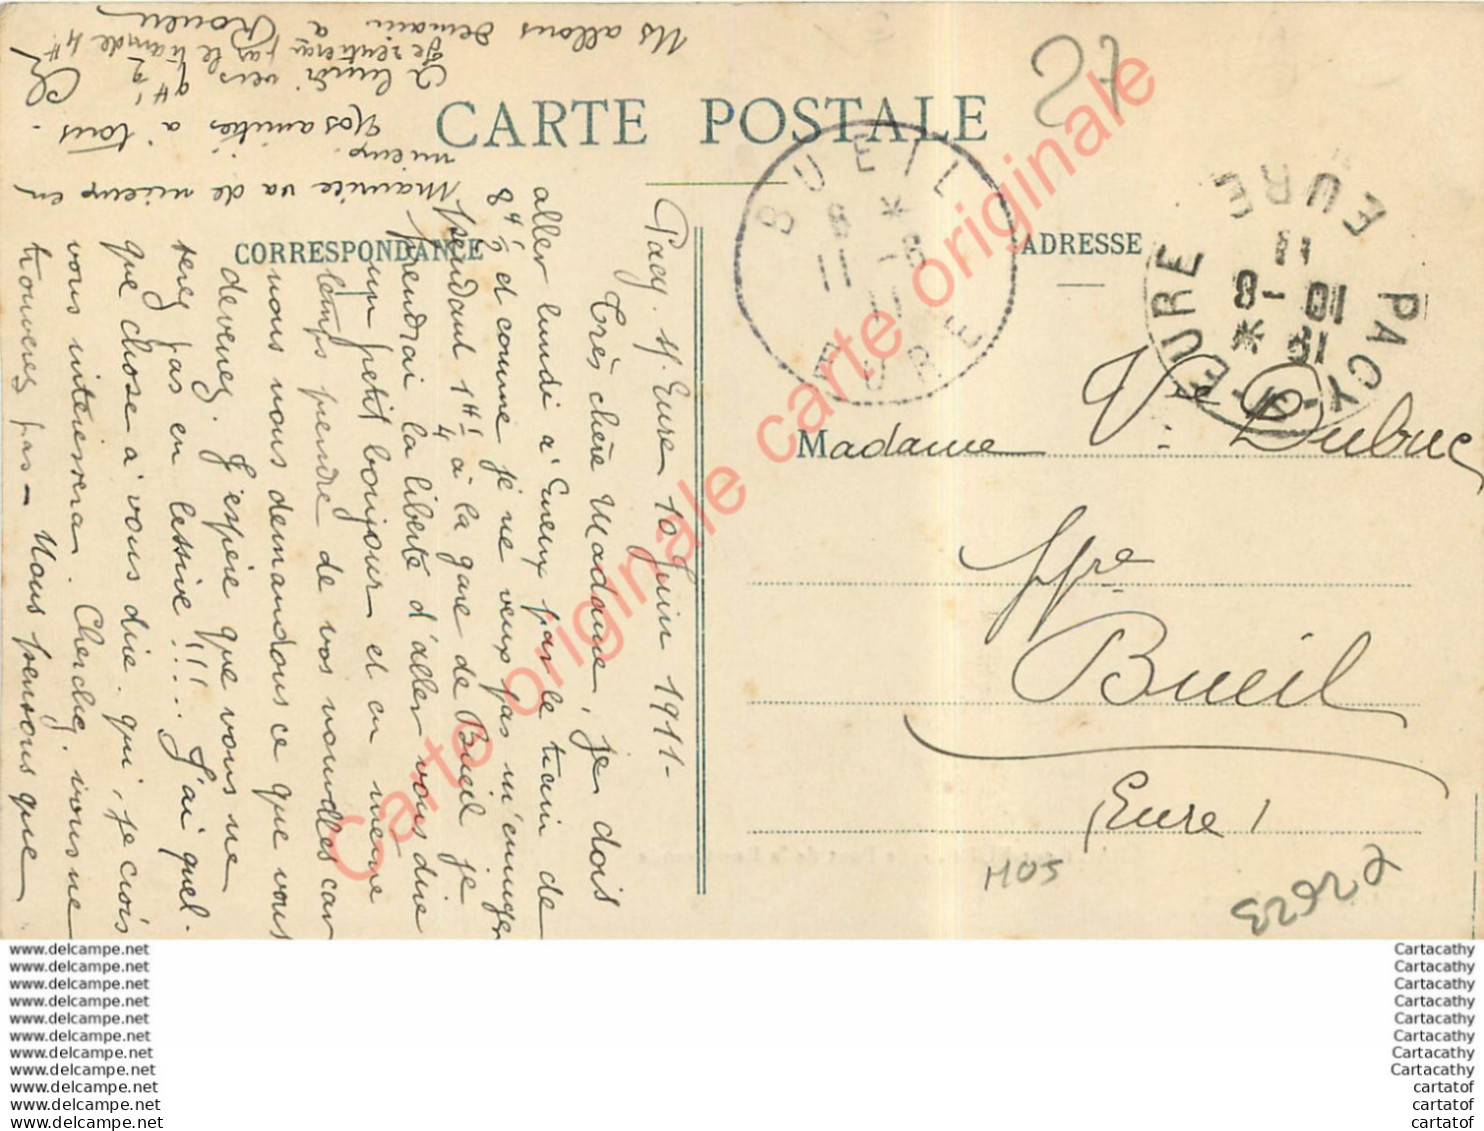 CARTE POSTALE
CORRESPONDANCE
ADRESSE
Pacy. s/. Eure 10 Juin 1911-
Très chère Madame, je dois
aller lundi à Evreux par le train de
8h ½ et comme je ne veux pas m'ennuyer
pendant 1H ¼ à la gare de Bueil je
prendrai la liberté d'aller vous dire
un petit bonjour et en même
temps prendre de vos nouvelles car
nous nous demandons ce que vous
devenez. J'espère que vous ne
serez pas en lessive!!!.. J'ai quel-
que chose à vous dire. qui, je crois
vous intéressera. Cherchez, vous ne
trouverez pas - Nous pensons que
Maurice va de mieux en
mieux.
Nos amitiés à tous.
A lundi vers 9H ½
Je rentierai par le train de 4H
Ns allons demain à Rouen
Madame Ve Dubuc
ppre
Bueil
Eure
BUEIL
8 *
11 -6
11
EURE
PACY-S-EURE
EURE
18 *
10 -6
11
27
H05
E2923
Carte originale carte originale
www.delcampe.net
www.delcampe.net
www.delcampe.net
www.delcampe.net
www.delcampe.net
www.delcampe.net
www.delcampe.net
www.delcampe.net
www.delcampe.net
www.delcampe.net
www.delcampe.net
Cartacathy
Cartacathy
Cartacathy
Cartacathy
Cartacathy
Cartacathy
Cartacathy
Cartacathy
cartatof
cartatof
cartatof